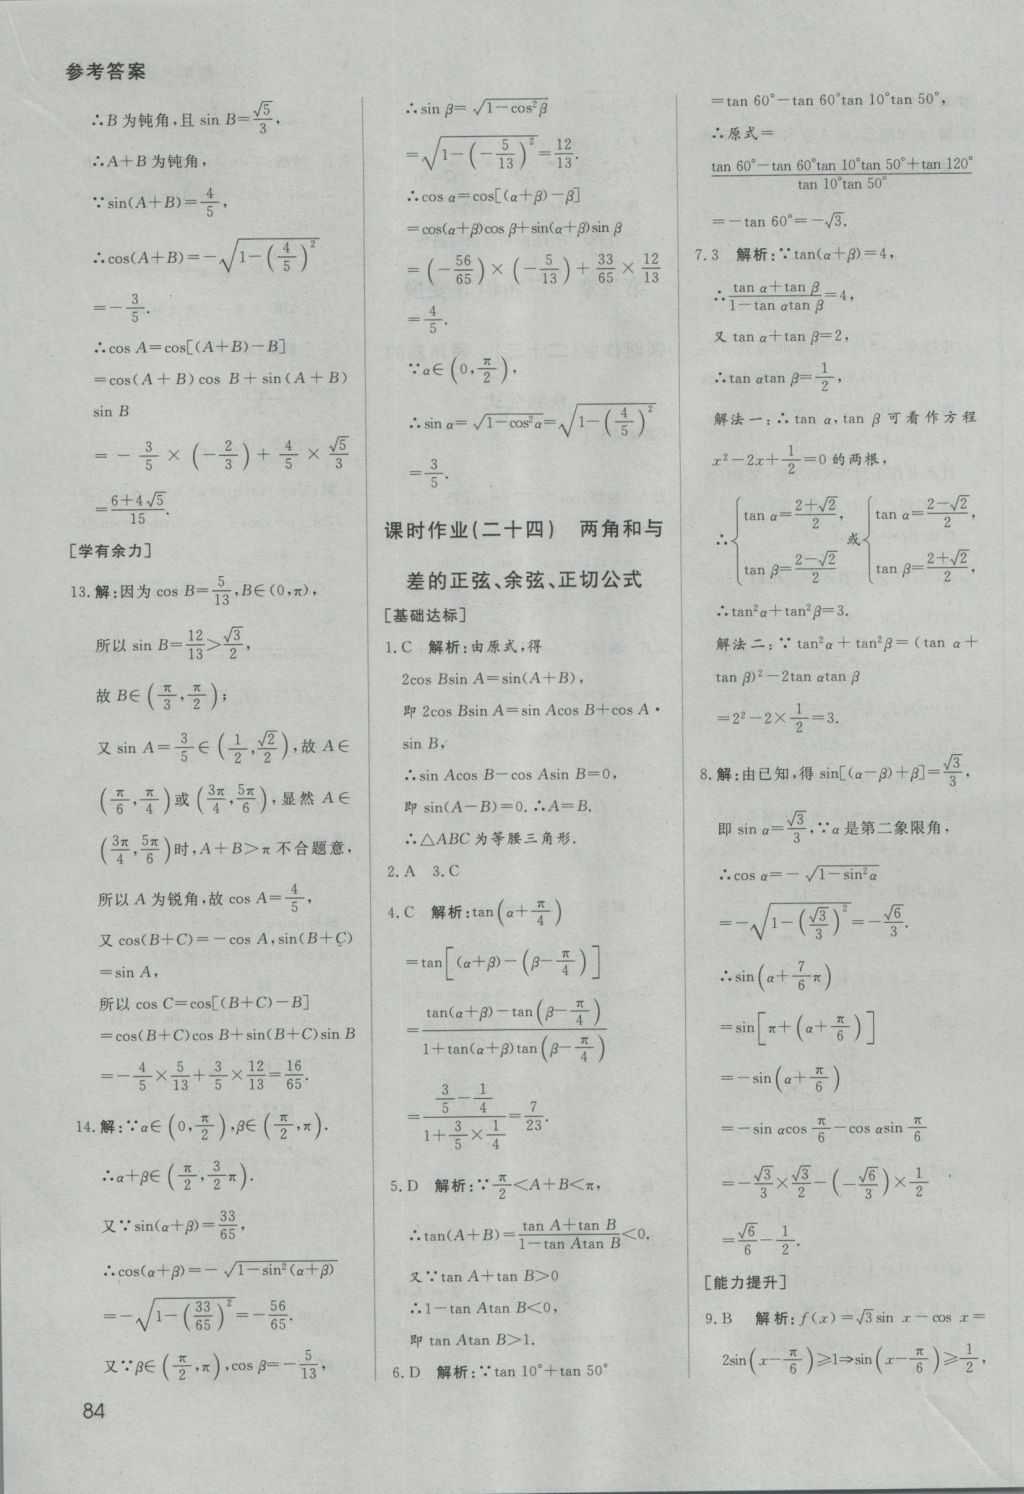 参考答案
∴B为钝角,且 sin B=√5/3,
∴A+B为钝角,
∵sin(A+B)=4/5,
∴cos(A+B)=-√(1-(4/5)²)
=-3/5.
∴cos A=cos[(A+B)-B]
=cos(A+B)cos B+sin(A+B)
sin B
=-3/5×(-2/3)+4/5×√5/3
=(6+4√5)/15.
[学有余力]
13.解:因为 cos B=5/13,B∈(0,π),
所以 sin B=12/13>√3/2,
故 B∈(π/3,π/2);
又 sin A=3/5∈(1/2,√2/2),故 A∈
(π/6,π/4)或(3π/4,5π/6),显然 A∈
(3π/4,5π/6)时,A+B>π不合题意,
所以 A 为锐角,故 cos A=4/5,
又 cos(B+C)=-cos A,sin(B+C)
=sin A,
所以 cos C=cos[(B+C)-B]
=cos(B+C)cos B+sin(B+C)sin B
=-4/5×5/13+3/5×12/13=16/65.
14.解:∵α∈(0,π/2),β∈(π/2,π).
∴α+β∈(π/2,3/2π).
又∵sin(α+β)=33/65,
∴cos(α+β)=-√(1-sin²(α+β))
=-√(1-(33/65)²)=-56/65.
又∵β∈(π/2,π),cos β=-5/13,
84
∴sin β=√(1-cos²β)
=√(1-(-5/13)²)=12/13.
∴cos α=cos[(α+β)-β]
=cos(α+β)cos β+sin(α+β)sin β
=(-56/65)×(-5/13)+33/65×12/13
=4/5.
∵α∈(0,π/2),
∴sin α=√(1-cos²α)=√(1-(4/5)²)
=3/5.
课时作业(二十四) 两角和与
差的正弦、余弦、正切公式
[基础达标]
1.C 解析:由原式,得
2cos Bsin A=sin(A+B),
即 2cos Bsin A=sin Acos B+cos A·
sin B,
∴sin Acos B-cos Asin B=0,
即 sin(A-B)=0.∴A=B.
∴△ABC为等腰三角形.
2.A 3.C
4.C 解析:tan(α+π/4)
=tan[(α+β)-(β-π/4)]
=(tan(α+β)-tan(β-π/4))/(1+tan(α+β)tan(β-π/4))
=(3/5-1/4)/(1+3/5×1/4)=7/23.
5.D 解析:∵π/2<A+B<π,
∴tan(A+B)=(tan A+tan B)/(1-tan Atan B)<0.
又∵tan A+tan B>0
∴1-tan Atan B<0,
即 tan Atan B>1.
6.D 解析:∵tan 10°+tan 50°
=tan 60°-tan 60°tan 10°tan 50°,
∴原式=
(tan 60°-tan 60°tan 10°tan 50°+tan 120°)/(tan 10°tan 50°)
=-tan 60°=-√3.
7.3 解析:∵tan(α+β)=4,
∴(tan α+tan β)/(1-tan αtan β)=4,
又 tan α+tan β=2,
∴tan αtan β=1/2,
解法一:∴tan α,tan β可看作方程
x²-2x+1/2=0的两根,
∴{tan α=(2+√2)/2, tan β=(2-√2)/2 或{tan α=(2-√2)/2, tan β=(2+√2)/2,
∴tan²α+tan²β=3.
解法二:∵tan²α+tan²β=(tan α+
tan β)²-2tan αtan β
=2²-2×1/2=3.
8.解:由已知,得 sin[(α-β)+β]=√3/3,
即 sin α=√3/3,∵α是第二象限角,
∴cos α=-√(1-sin²α)
=-√(1-(√3/3)²)=-√6/3.
∴sin(α+7/6π)
=sin[π+(α+π/6)]
=-sin(α+π/6)
=-sin αcos π/6-cos αsin π/6
=-√3/3×√3/2-(-√6/3)×1/2
=√6/6-1/2.
[能力提升]
9.B 解析:f(x)=√3sin x-cos x=
2sin(x-π/6)≥1⇒sin(x-π/6)≥1/2,